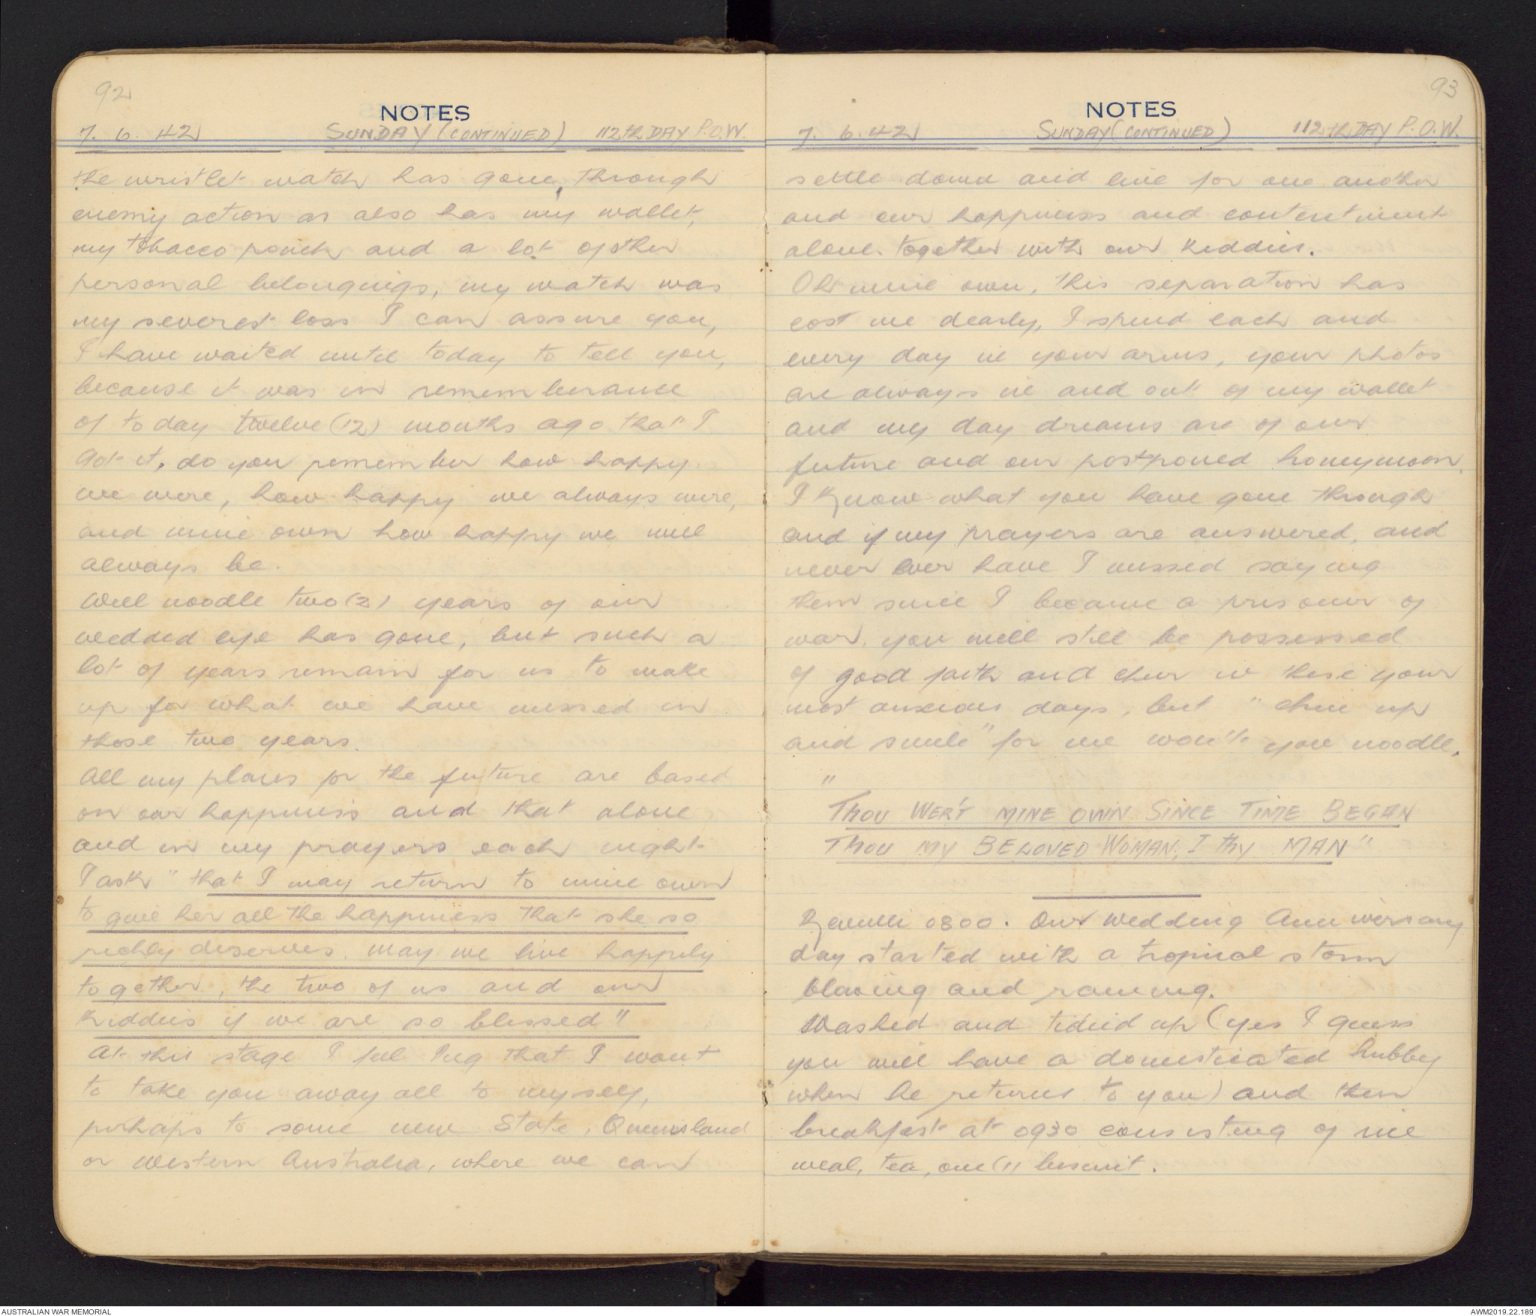 92
NOTES
7. 6. 42 SUNDAY (CONTINUED) 112th DAY P.O.W.
the wristlet watch has gone, through
enemy action as also has my wallet,
my tobacco pouch and a lot of other
personal belongings, my watch was
my severest loss I can assure you,
I have waited until today to tell you,
because it was in rememberance
of to day twelve (12) months ago that I
got it, do you remember how happy
we were, how happy we always were,
and mine own how happy we will
always be.
Well noodle two (2) years of our
wedded life has gone, but such a
lot of years remain for us to make
up for what we have missed in
those two years.
All my plans for the future are based
on our happiness and that alone
and in my prayers each night
I ask "that I may return to mine own
to give her all the happiness that she so
richly deserves. may we live happily
together, the two of us and our
kiddies if we are so blessed"
At this stage I feel Pug that I want
to take you away all to myself,
perhaps to some new State, Queensland
or Western Australia, where we can
93
NOTES
7. 6. 42 SUNDAY (CONTINUED) 112th DAY P.O.W.
settle down and live for one another
and our happiness and contentment
alone. together with our kiddies.
Oh mine own, this separation has
cost me dearly, I spend each and
every day in your arms, your photos
are always in and out of my wallet
and my day dreams are of our
future and our postponed honeymoon.
I know what you have gone through
and if my prayers are answered, and
never ever have I missed saying
them since I became a prisoner of
war, you will still be possessed
of good faith and cheer in these your
most anxious days, but "chin up
and smile" for me won't you noodle.
"
THOU WER'T MINE OWN SINCE TIME BEGAN
THOU MY BELOVED WOMAN, I THY MAN"
Reveille 0800. Our Wedding Anniversary
day started with a tropical storm
blowing and raining.
Washed and tidied up (yes I guess
you will have a domesticated hubby
when he returns to you) and then
breakfast at 0930 consisting of rice
meal, tea, one (1) biscuit.
AUSTRALIAN WAR MEMORIAL
AWM2019.22.189